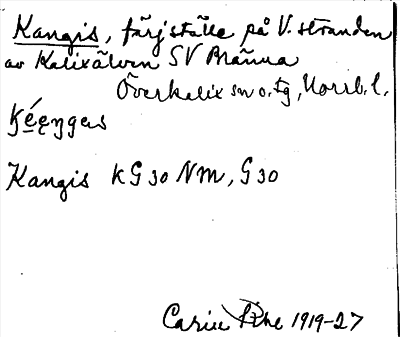 Kangis, färjställe på V. stranden
av Kalixälven SV Bränna
Överkalix sn o. tg, Norrb. l.
Kangis KG 30 NM, G 30
Carin 1919-27